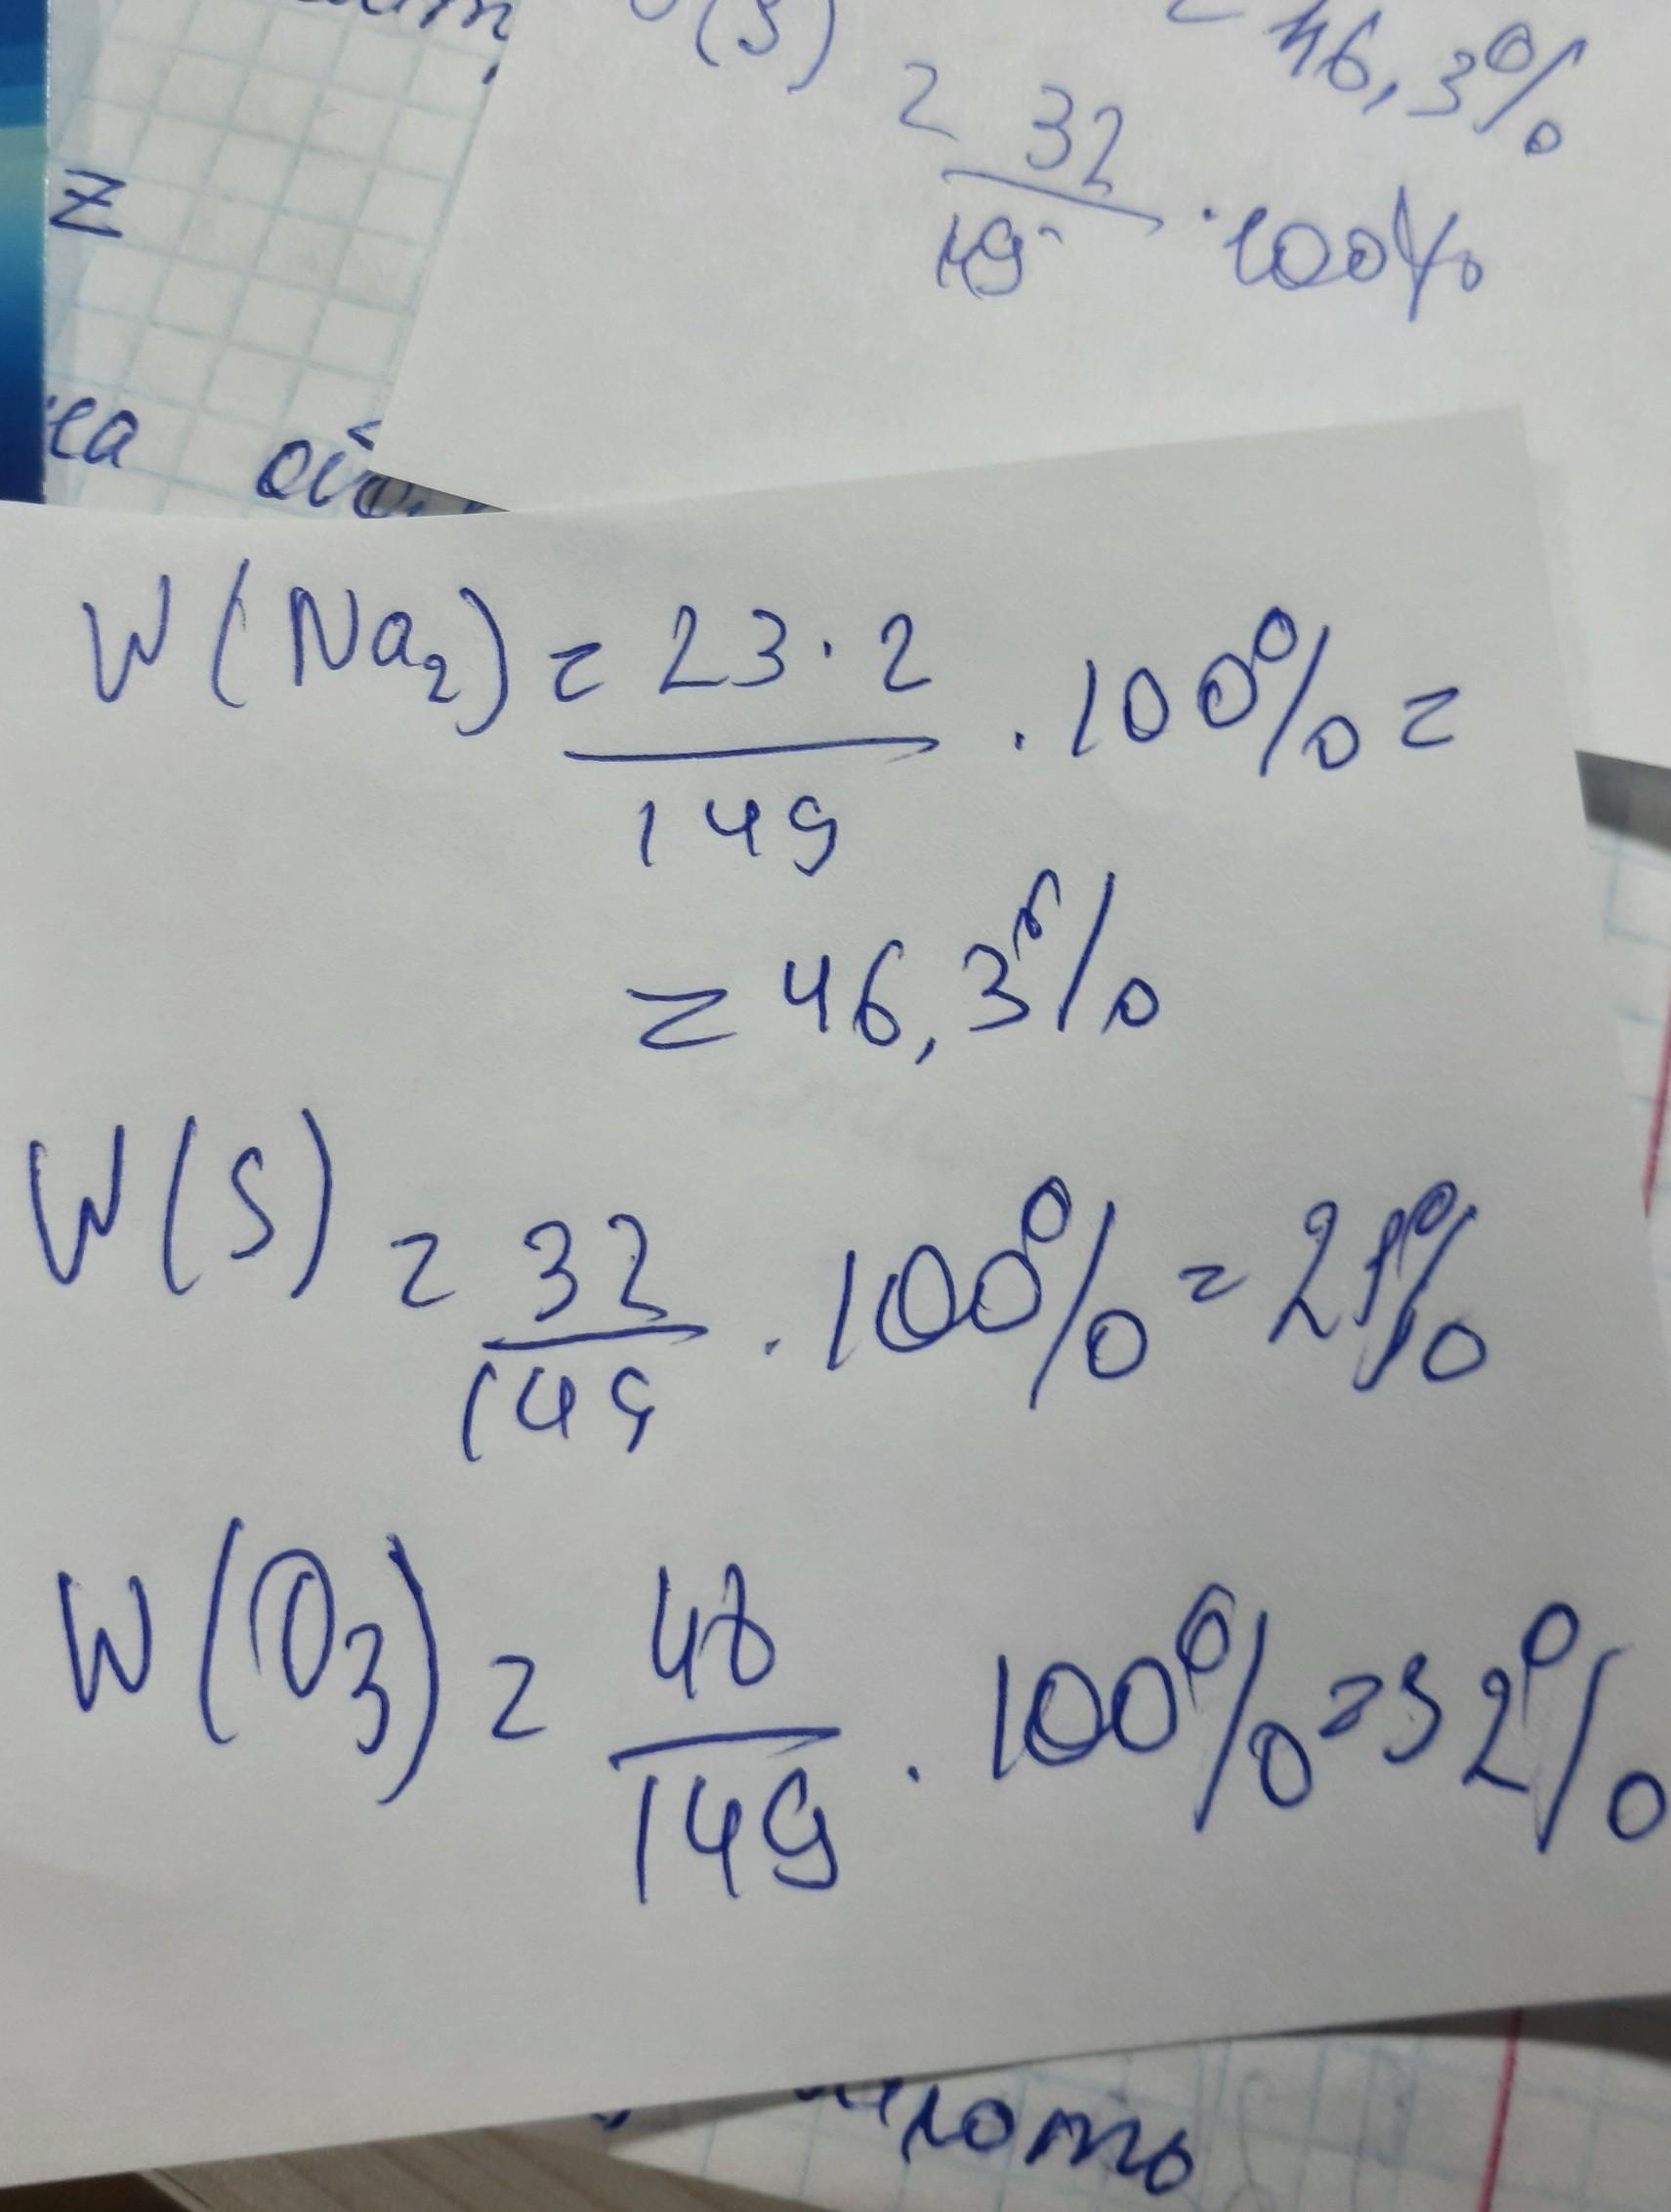 (S)
= 46,3%
= 32
149
· 100%
z
W(Na₂) = 23·2
149
· 100% =
= 46,3%
W(S) = 32
149
· 100% = 21%
W(O₃) = 48
149
· 100% = 32%